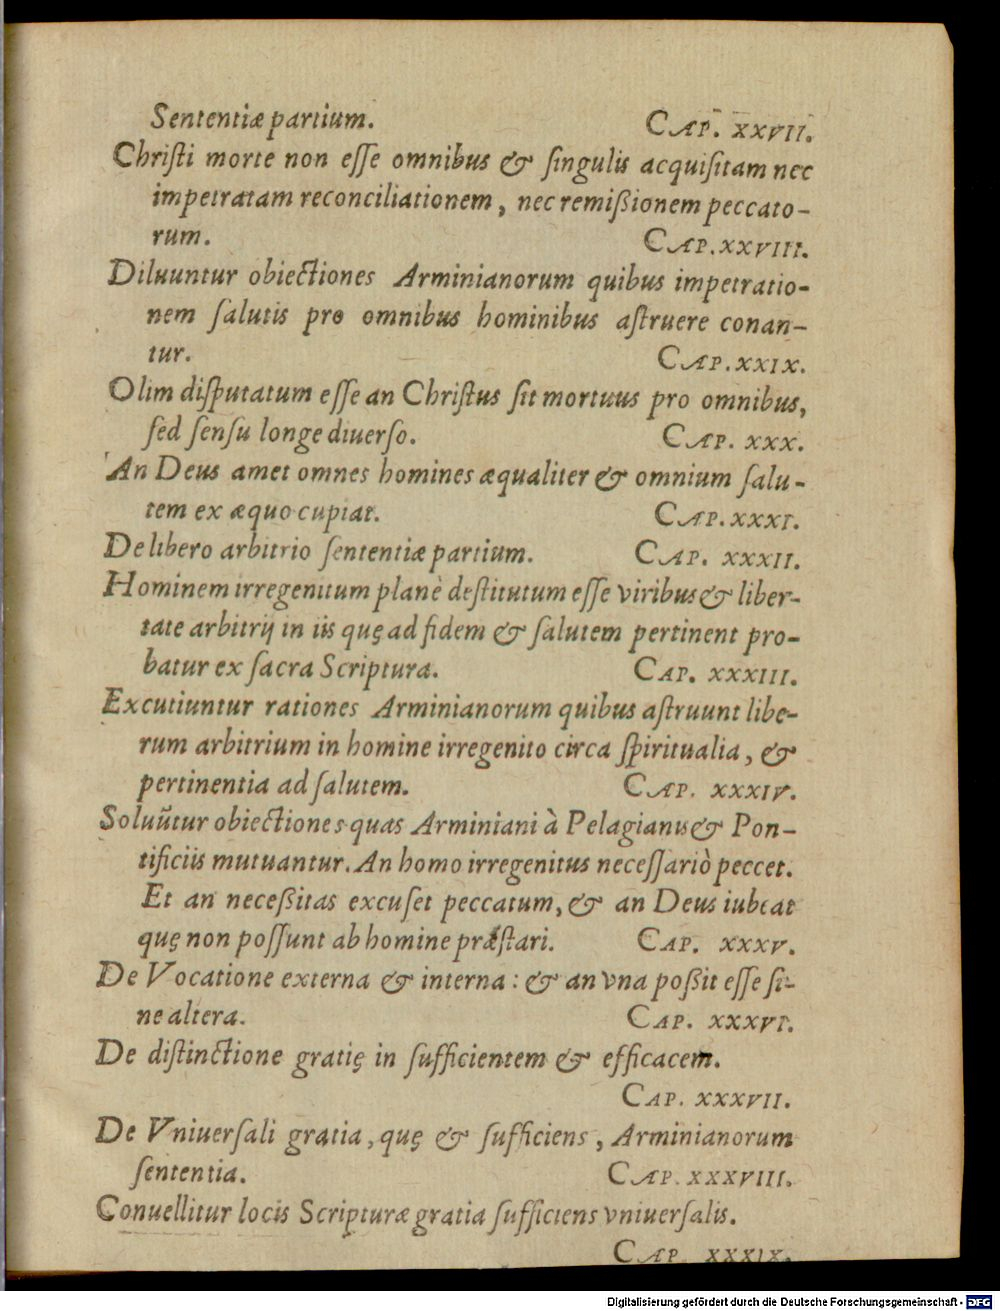 Sententiæ partium. CAP. XXVII.
Chriſti morte non eſſe omnibus & ſingulis acquiſitam nec
impetratam reconciliationem, nec remißionem peccato-
rum. CAP. XXVIII.
Diluuntur obiectiones Arminianorum quibus impetratio-
nem ſalutis pro omnibus hominibus aſtruere conan-
tur. CAP. XXIX.
Olim diſputatum eſſe an Chriſtus ſit mortuus pro omnibus,
ſed ſenſu longe diuerſo. CAP. XXX.
An Deus amet omnes homines æqualiter & omnium ſalu-
tem ex æquo cupiat. CAP. XXXI.
De libero arbitrio ſententiæ partium. CAP. XXXII.
Hominem irregenitum planè deſtitutum eſſe viribus & liber-
tate arbitrij in iis quę ad fidem & ſalutem pertinent pro-
batur ex ſacra Scriptura. CAP. XXXIII.
Excutiuntur rationes Arminianorum quibus aſtruunt libe-
rum arbitrium in homine irregenito circa ſpiritualia, &
pertinentia ad ſalutem. CAP. XXXIV.
Soluũtur obiectiones quas Arminiani à Pelagianis & Pon-
tificiis mutuantur. An homo irregenitus neceſſariò peccet.
Et an neceßitas excuſet peccatum, & an Deus iubeat
quę non poſſunt ab homine præſtari. CAP. XXXV.
De Vocatione externa & interna : & an vna poßit eſſe ſi-
ne altera. CAP. XXXVI.
De diſtinctione gratię in ſufficientem & efficacem.
CAP. XXXVII.
De Vniuerſali gratia, quę & ſufficiens, Arminianorum
ſententia. CAP. XXXVIII.
Conuellitur locis Scripturæ gratia ſufficiens vniuerſalis.
CAP. XXXIX.
Digitalisierung gefördert durch die Deutsche Forschungsgemeinschaft - DFG